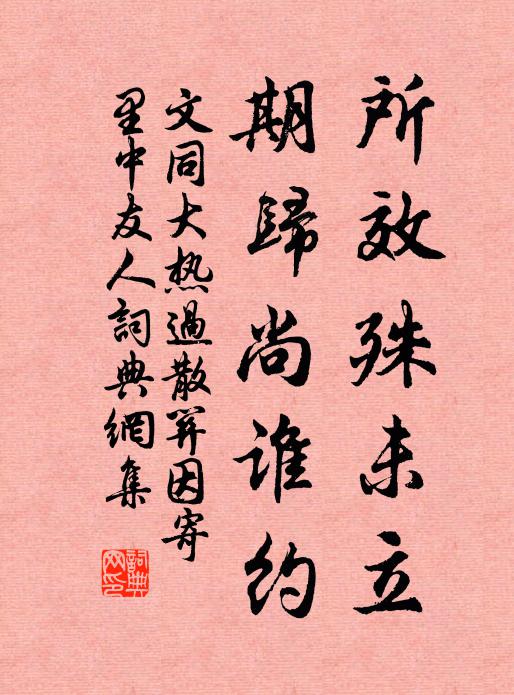 所效殊未立
期歸尚谁約
文同大热過散関因寄
里中友人詞典網集
詞典网印